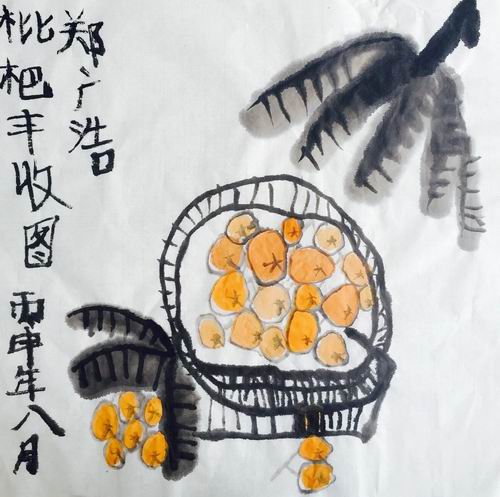 枇杷丰收图 丙申年八月
郑广浩